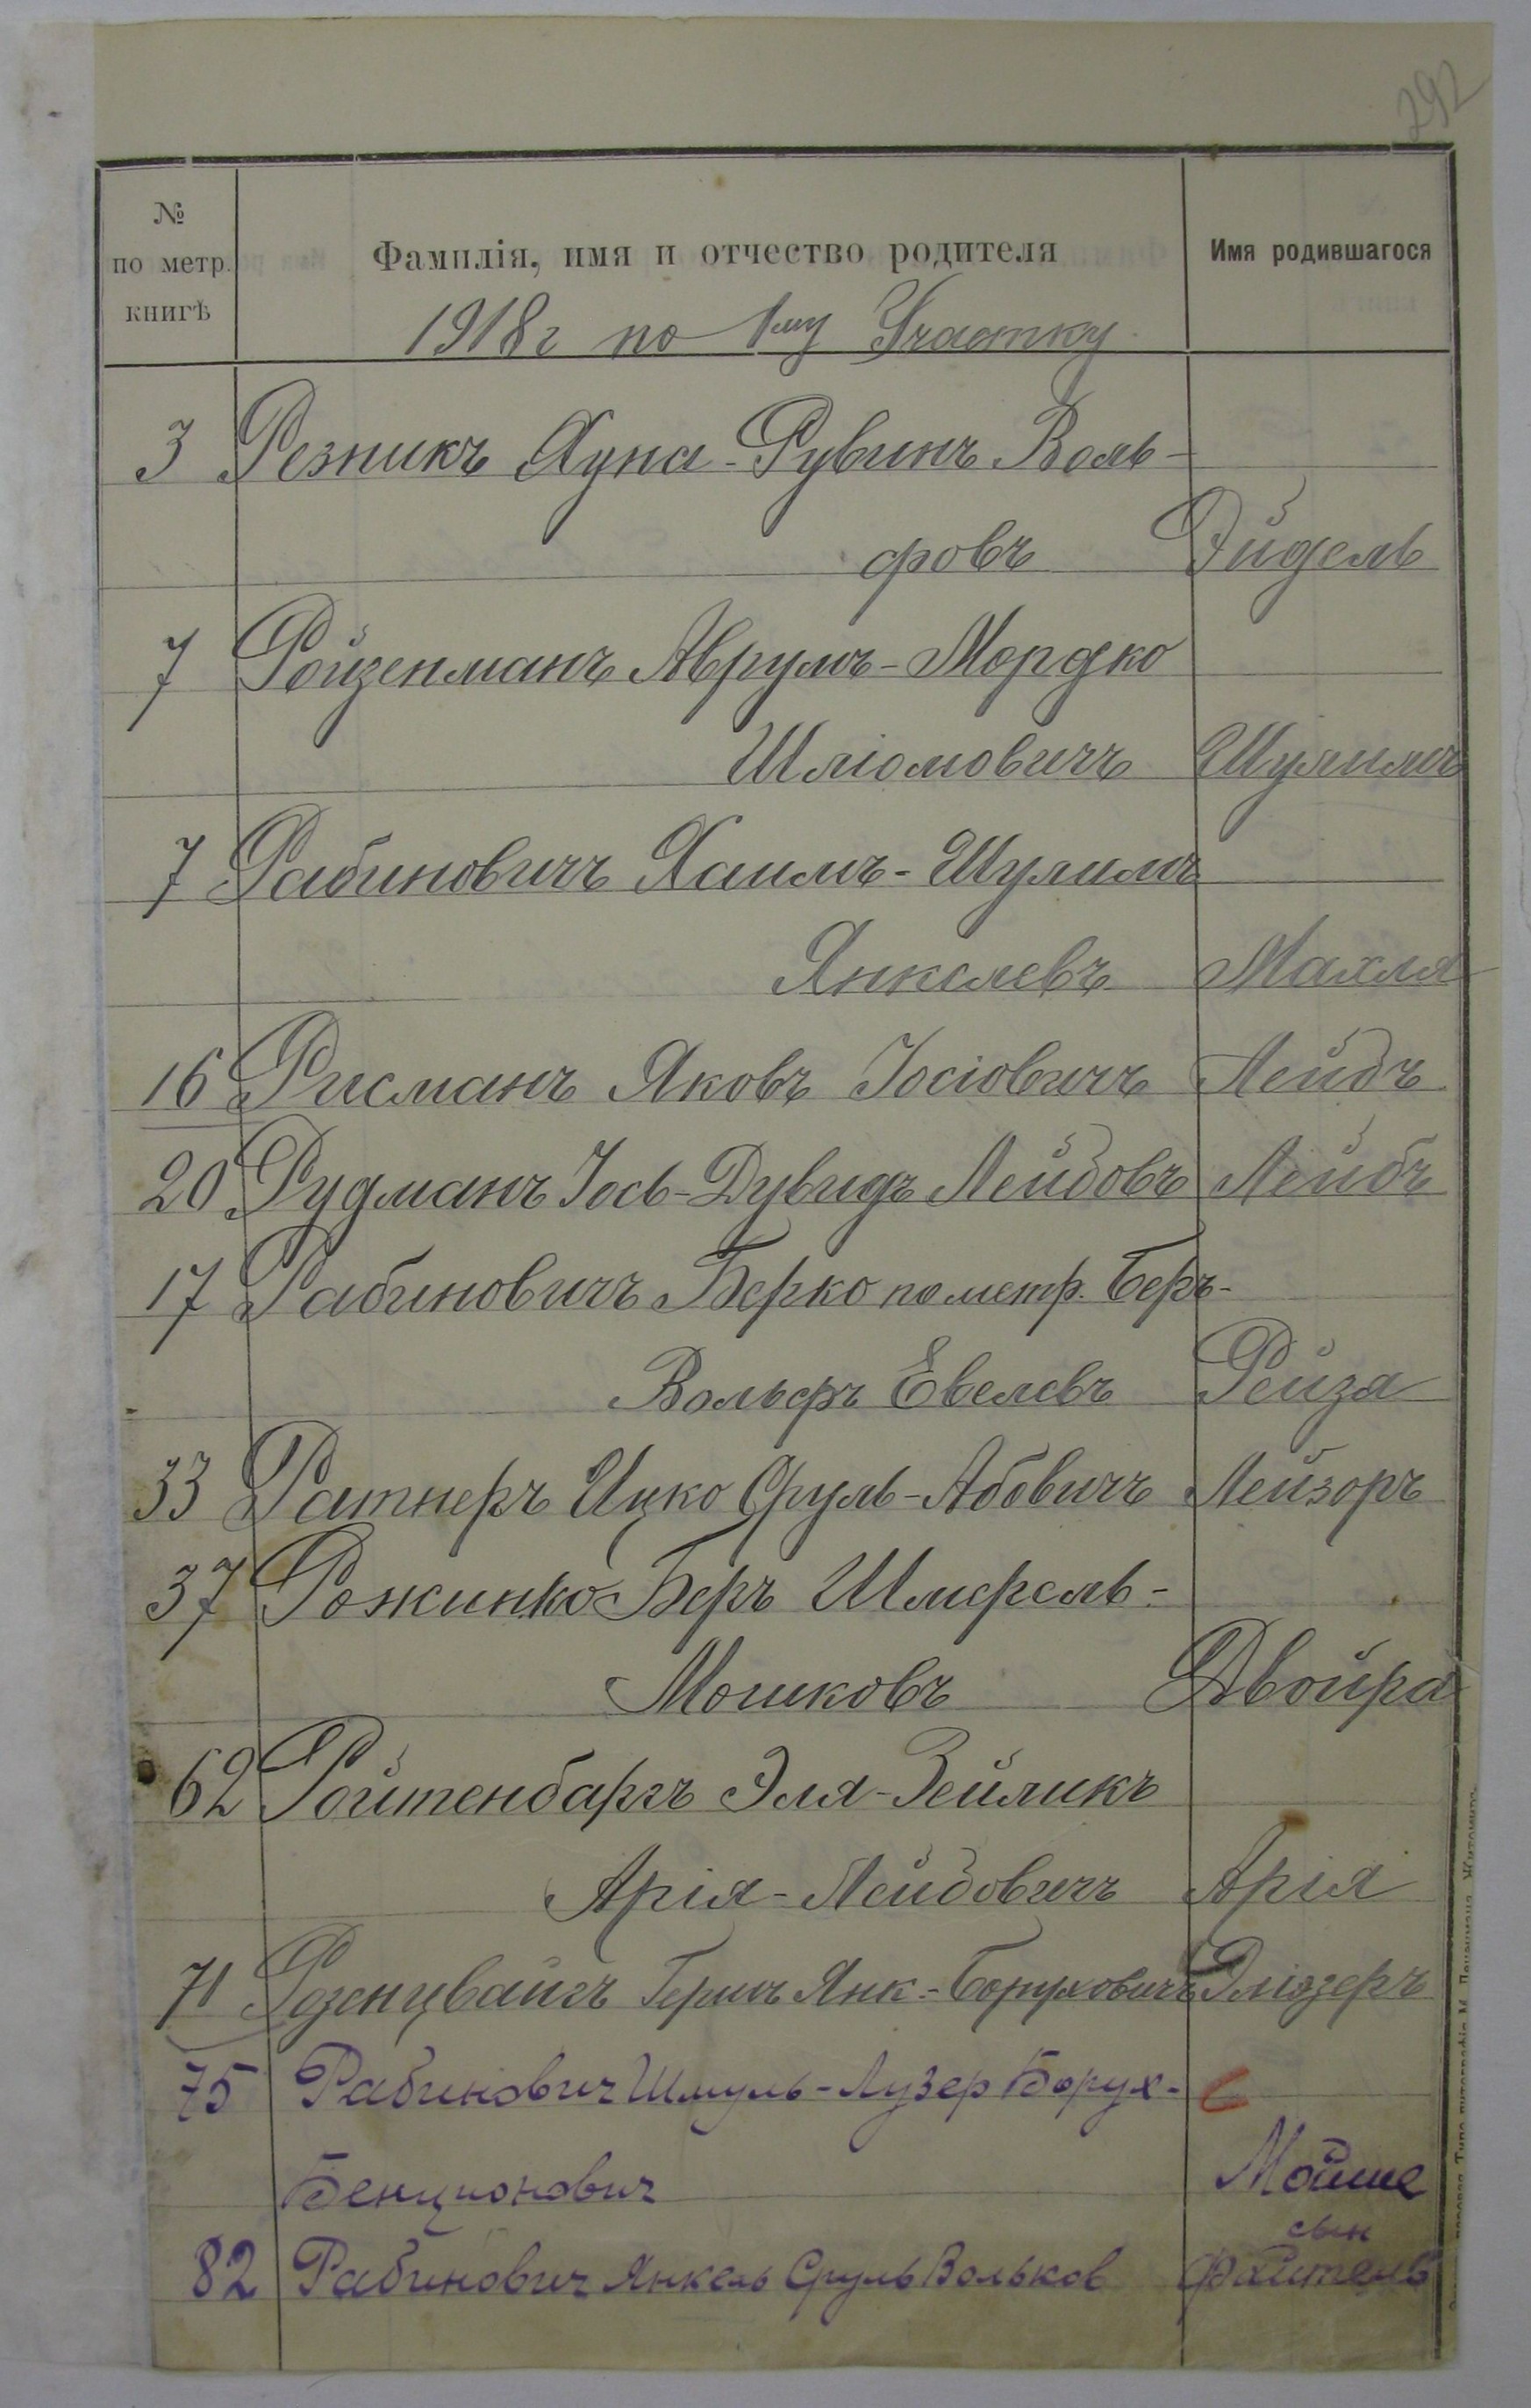 292
№
по метр.
книгѣ
Фамилія, имя и отчество родителя
Имя родившагося
1918г по 1му Участку
3 Резникъ Хуна-Рувинъ Воль-
фовъ Эйдель
7 Ройзенманъ Аврумъ-Мордко
Шліомовичъ Шулимъ
7 Рабиновичъ Хаимъ-Шулимъ
Янкелевъ Махля
16 Рисманъ Яковъ Іосіовичъ Лейбъ
20 Рудманъ Іось-Дувидъ Лейбовъ Лейбъ
17 Рабиновичъ Берко по метр. Беръ-
Вольфъ Евелевъ Рейза
33 Ратнеръ Ицко Сруль-Абовичъ Лейзоръ
37 Рожинко Беръ Шмерель-
Мошковъ Двойра
62 Ройтенбаргъ Эля-Зейликъ
Арія-Лейбовичъ Арія
71 Розенцвайгъ Гершъ Янк-Боруховичъ Эліэзеръ
75 Рабинович Шмуль-Лузер Борух-
Бенционович Мойше
сын
82 Рабинович Янкель Сруль Вольков Файтель